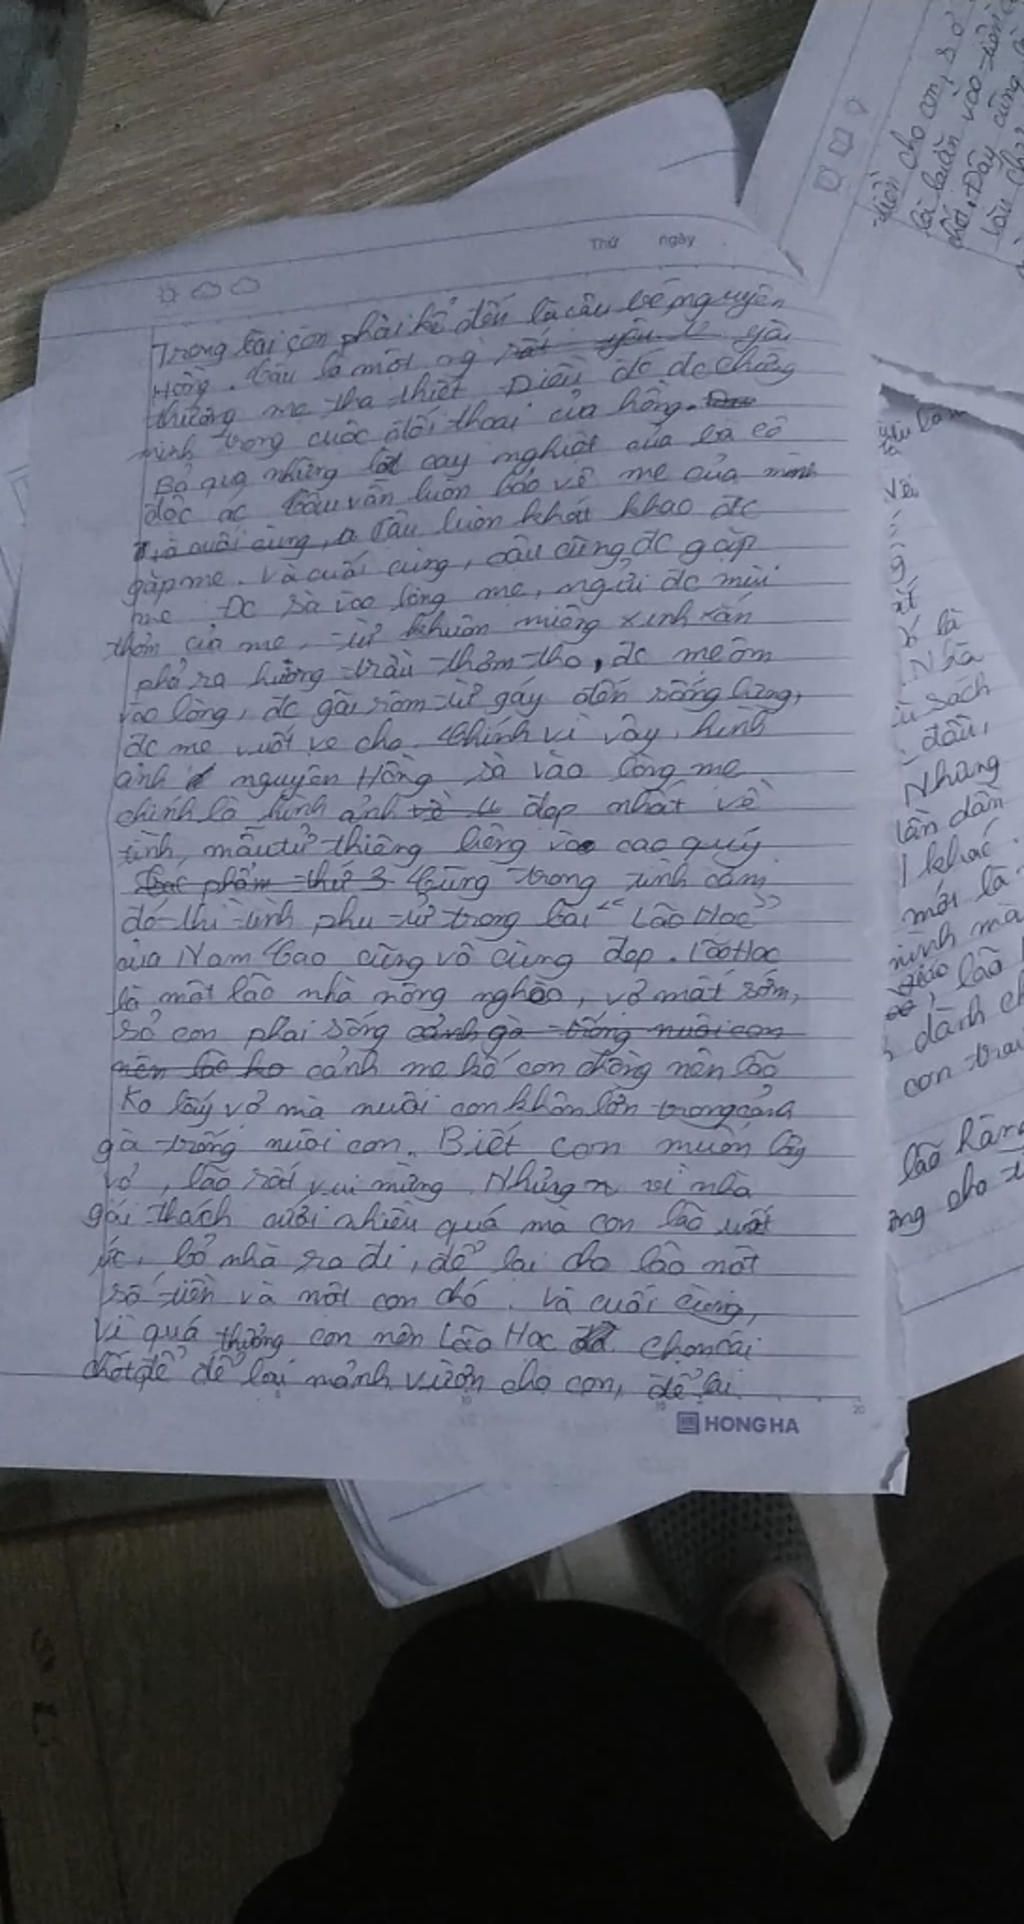 Thứ ngày
Trong bài còn phải kể đến là cậu bé nguyên
Hồng. Cậu là một ng rất yêu yêu
thương mẹ tha thiết Điều đó đc chứng
minh trong cuộc đối thoại của hồng.
Bỏ qua những lời cay nghiệt của bà cô
độc ác Cậu vẫn luôn bảo vệ mẹ của mình
và cuối cùng, Cậu luôn khát khao đc
gặp mẹ. Và cuối cùng, cậu cũng đc gặp
mẹ Đc sà vào lòng mẹ, ngửi đc mùi
thơm của mẹ, từ khuôn miệng xinh xắn
phả ra hương trầu thơm tho, đc mẹ ôm
vào lòng, đc gãi rôm từ gáy đến sống lưng,
đc mẹ vuốt ve cho. Chính vì vậy, hình
ảnh nguyên Hồng sà vào lòng mẹ
chính là hình ảnh về đẹp nhất về
tình mẫu tử thiêng liêng và cao quý
Tác phẩm thứ 3 Cũng trong tình cảm
đó thì tình phụ tử trong bài "Lão Hạc"
của Nam Cao cũng vô cùng đẹp. Lão Hạc
là một lão nhà nông nghèo, vợ mất sớm,
số con phải sống cảnh gà trống nuôi con
nên lão ko cảnh mẹ kế con chồng nên lão
Ko lấy vợ mà nuôi con khôn lớn trong cảnh
gà trống nuôi con. Biết con muốn lấy
vợ, lão rất vui mừng. Nhưng vì nhà
gái thách cưới nhiều quá mà con lão uất
ức, bỏ nhà ra đi, để lại cho lão một
số tiền và một con chó. Và cuối cùng,
Vì quá thương con nên Lão Hạc chọn cái
chết để để lại mảnh vườn cho con, để lại
HONG HA
tiền cho con, số
là luôn vào tiền
chó. Đây cũng
Nhà
sách
đầu,
Nhưng
lần dần
1 khác
mới là
mình mà
lão
dành
con trai
lão hàng
cho